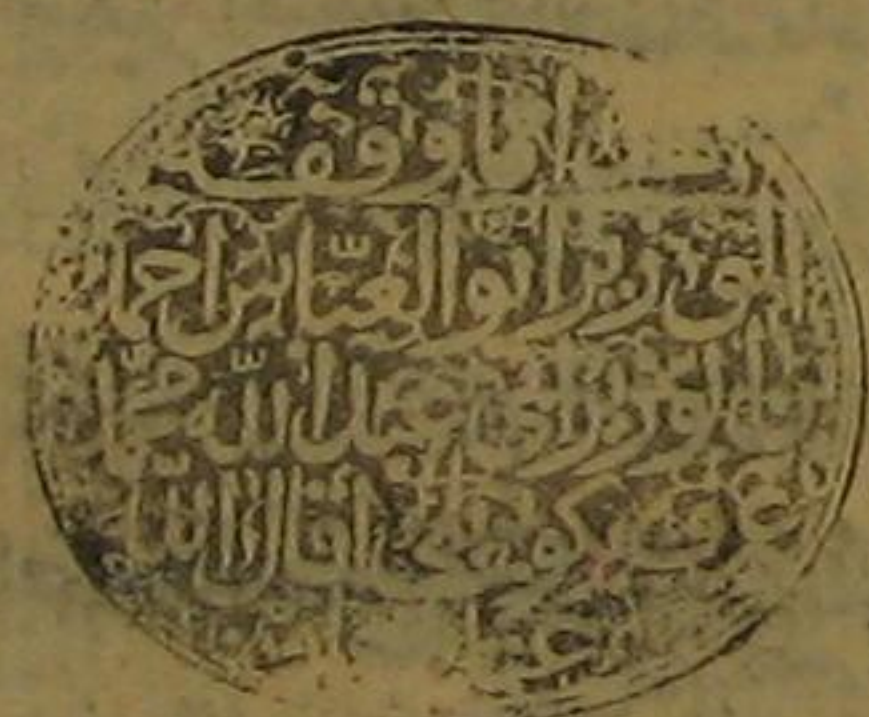 ما وقفه
الوزير ابو العباس احمد
بن الوزير ابي عبد الله محمد
عرف بكوپريلي اقال الله